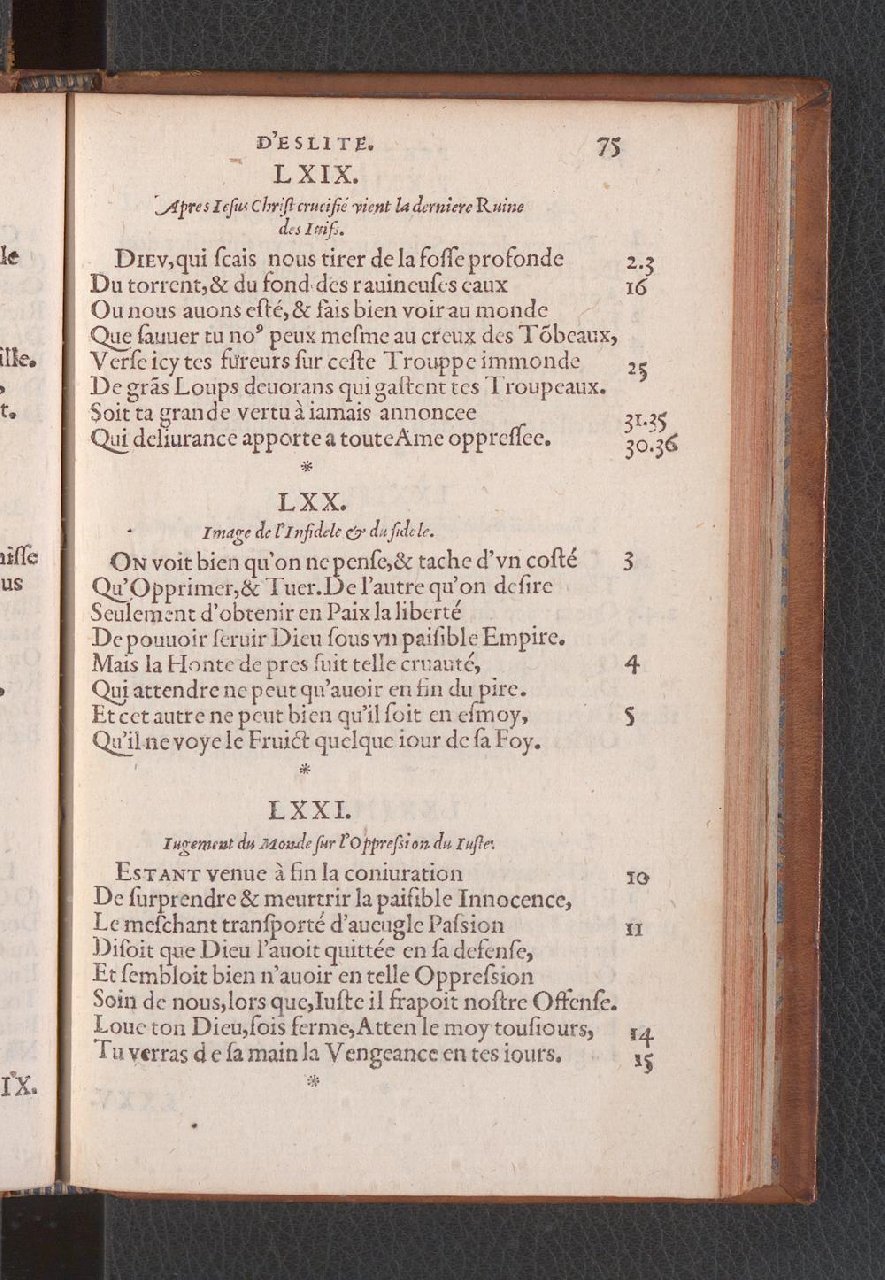 le
ille.
,
t.
aiſſe
us
IX.
D'ESLITE. 75
LXIX.
Apres Ieſus Chriſt crucifié vient la derniere Ruine
des Iuifs.
DIEV, qui ſcais nous tirer de la foſſe profonde 2.3
Du torrent, & du fond des rauineuſes eaux 16
Ou nous auons eſté, & fais bien voir au monde
Que ſauuer tu noꝰ peux meſme au creux des Tõbeaux,
Verſe icy tes fureurs ſur ceſte Trouppe immonde 25
De grãs Loups deuorans qui gaſtent tes Troupeaux.
Soit ta grande vertu à iamais annoncee 31.35
Qui deliurance apporte a toute Ame oppreſſee. 30.36
*
LXX.
Image de l'Infidele & du fidele.
ON voit bien qu'on ne penſe, & tache d'vn coſté 3
Qu'Opprimer, & Tuer. De l'autre qu'on deſire
Seulement d'obtenir en Paix la liberté
De pouuoir ſeruir Dieu ſous vn paiſible Empire.
Mais la Honte de pres ſuit telle cruauté, 4
Qui attendre ne peut qu'auoir en fin du pire.
Et cet autre ne peut bien qu'il ſoit en eſmoy, 5
Qu'il ne voye le Fruict quelque iour de ſa Foy.
*
LXXI.
Iugement du Monde ſur l'Oppreſsion du Iuſte.
ESTANT venue à fin la coniuration 10
De ſurprendre & meurtrir la paiſible Innocence,
Le meſchant tranſporté d'aueugle Paſsion 11
Diſoit que Dieu l'auoit quittée en ſa defenſe,
Et ſembloit bien n'auoir en telle Oppreſsion
Soin de nous, lors que, Iuſte il frapoit noſtre Offenſe.
Loue ton Dieu, ſois ferme, Atten le moy touſiours, 14
Tu verras de ſa main la Vengeance en tes iours. 15
*